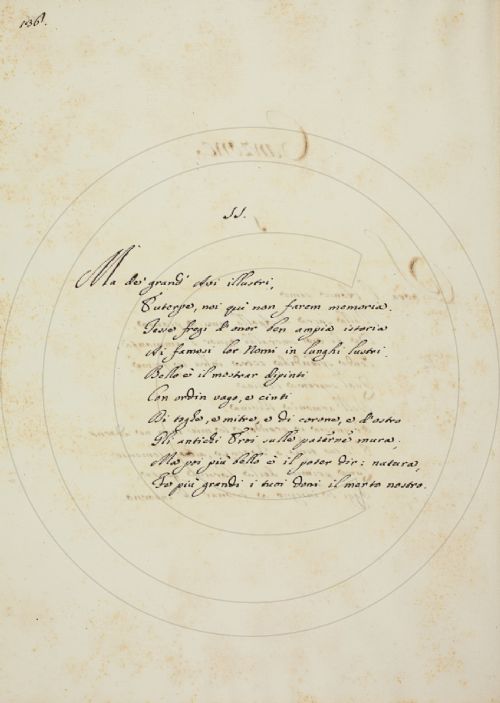 136.
11.
Ma dei grand' Avi illustri,
Euterpe, noi qui non farem memoria.
Tesse fregi d'onor ben ampia istoria
Ai famosi lor Nomi in lunghi lustri.
Bello è il mostrar dipinti
Con ordin vago, e cinti
Di toghe, e mitre, e di corone, e d'ostro
Gli antichi Eroi sulle paterne mura.
Ma poi più bello è il poter dir: natura,
Fe più grandi i tuoi doni il merto nostro.